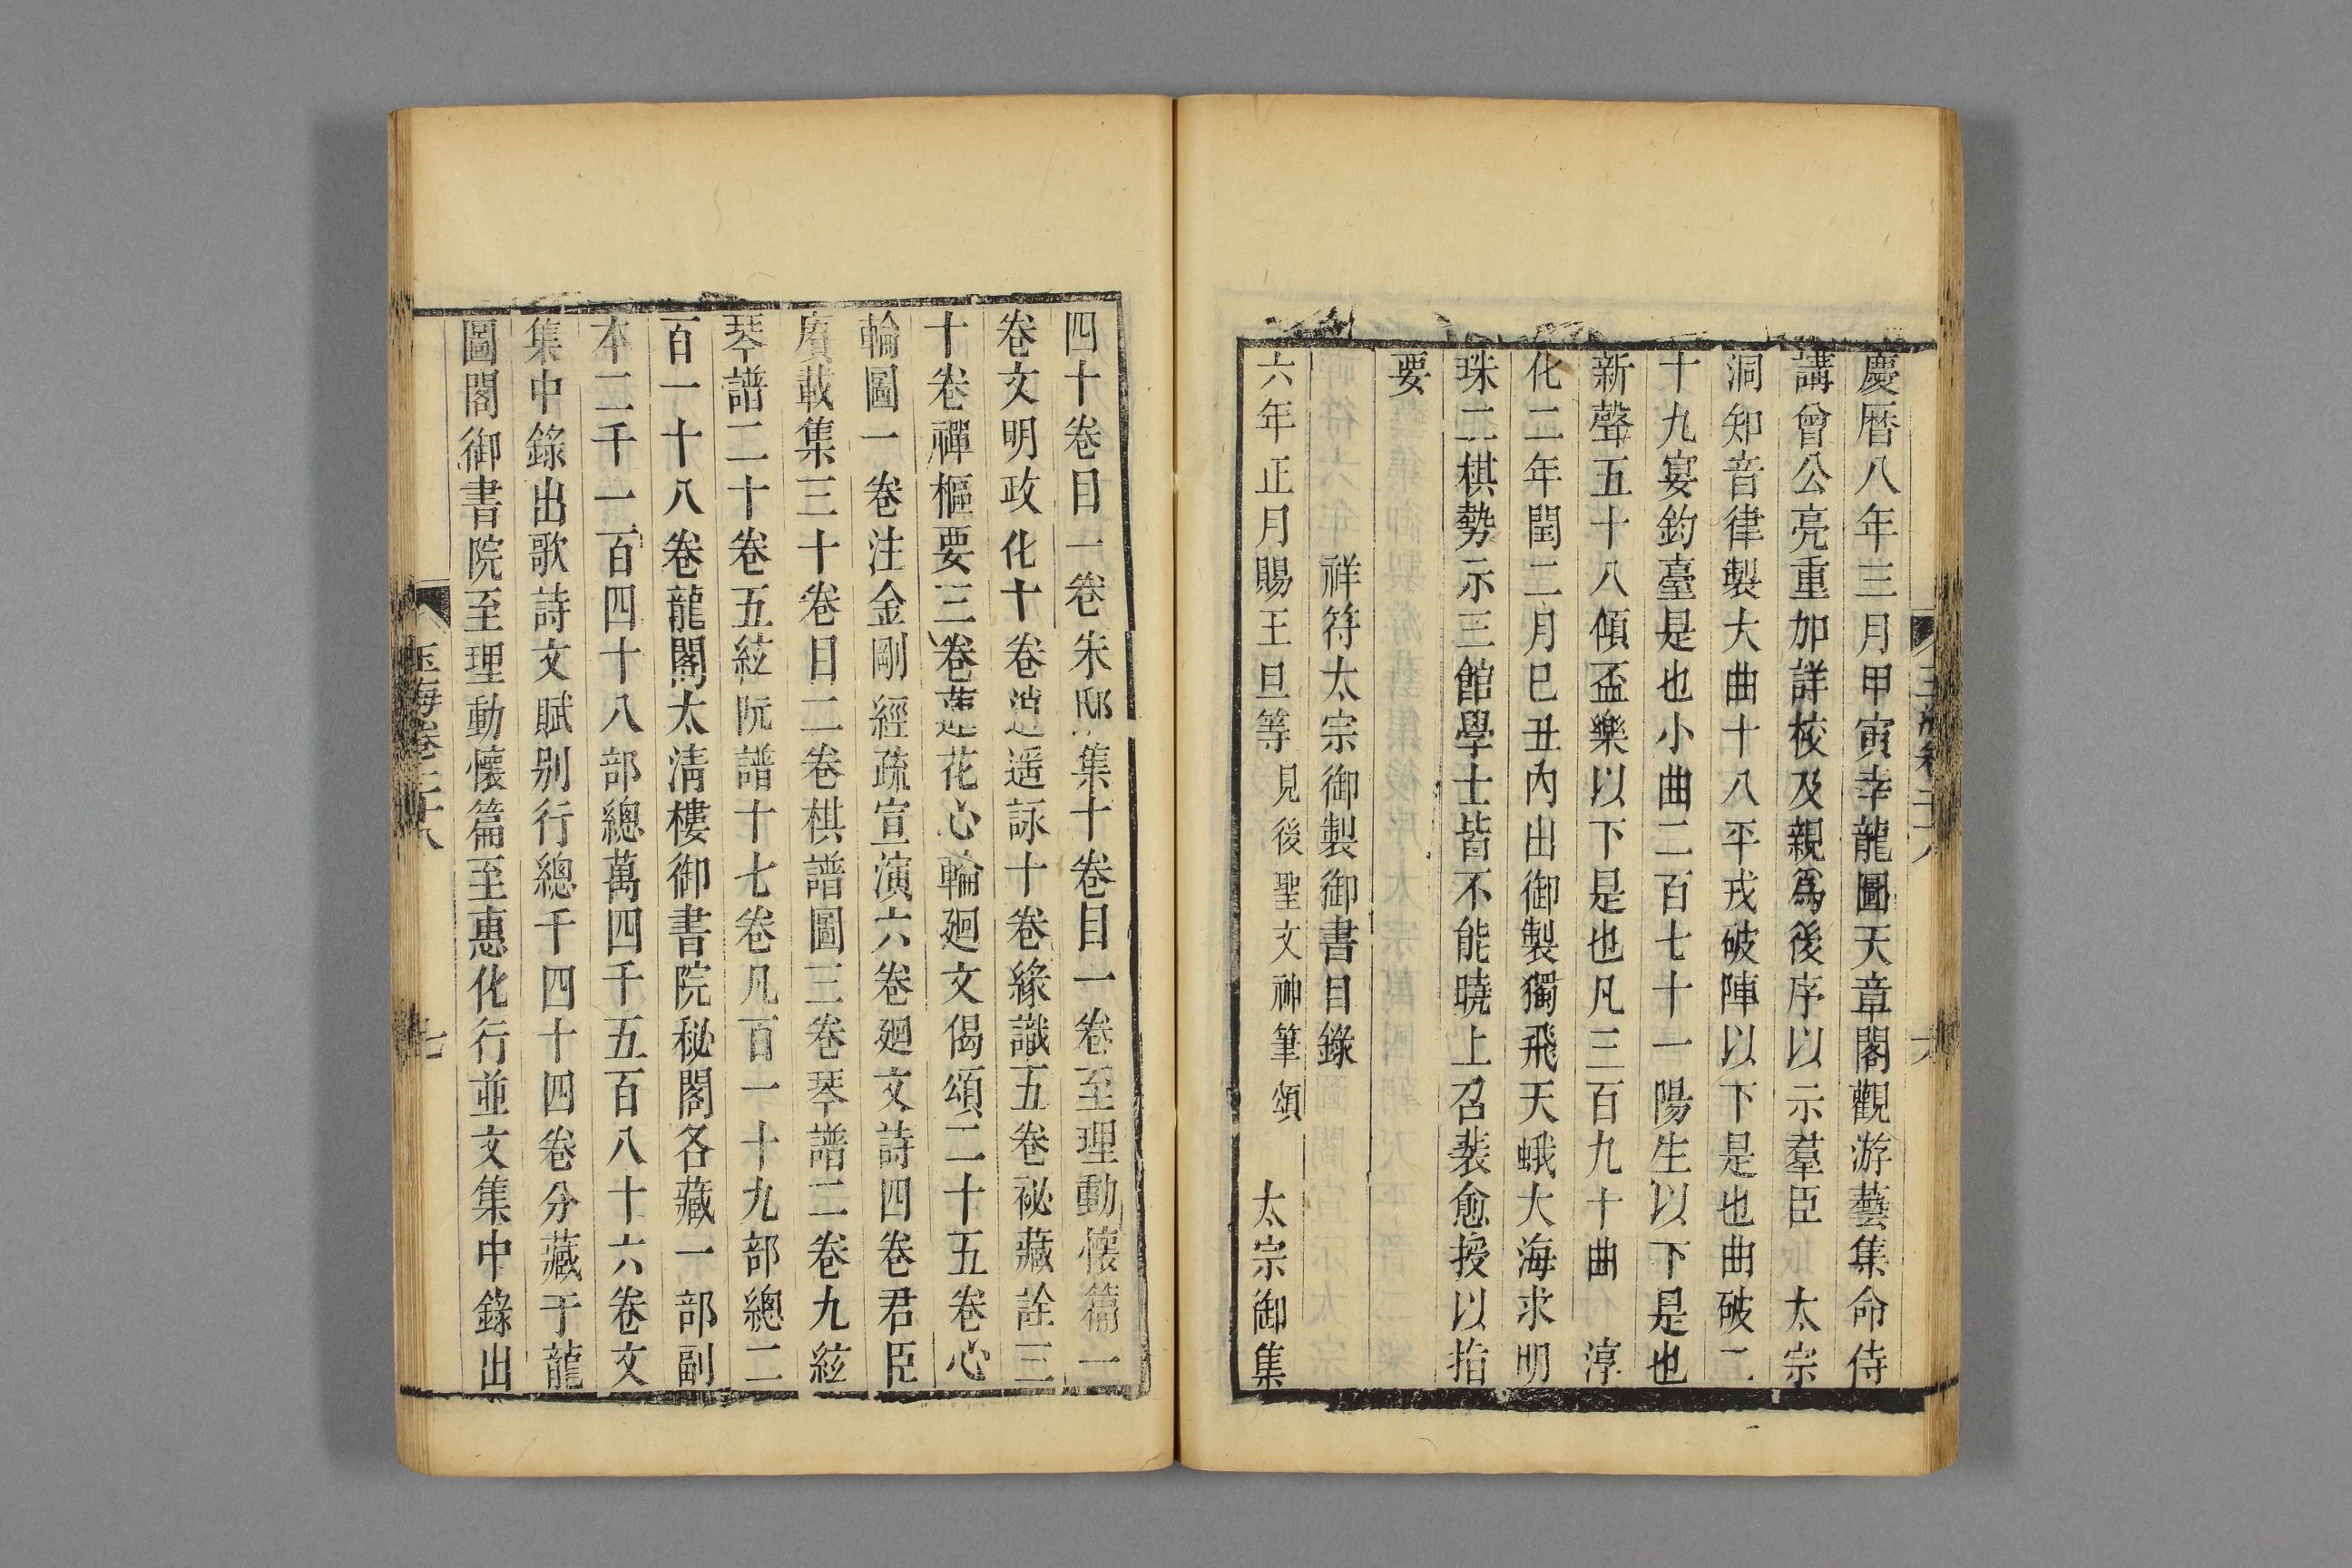 慶曆八年三月甲寅幸龍圖天章閣觀游藝集命侍
講曾公亮重加詳校及親爲後序以示羣臣 太宗
洞知音律製大曲十八平戎破陣以下是也曲破二
十九宴鈞臺是也小曲二百七十一陽生以下是也
新聲五十八傾盃樂以下是也凡三百九十曲 淳
化二年閏二月巳丑內出御製獨飛天蛾大海求明
珠二棋勢示三館學士皆不能曉上召裴愈授以指
要
祥符太宗御製御書目錄
六年正月賜王旦等見後聖文神筆頌 太宗御集
四十卷目一卷朱邸集十卷目一卷至理動懷篇一
卷文明政化十卷逍遥詠十卷緣識五卷祕藏詮三
十卷禪樞要三卷蓮花心輪廻文偈頌二十五卷心
輪圖一卷注金剛經疏宣演六卷廻文詩四卷君臣
賡載集三十卷目二卷棋譜圖三卷琴譜二卷九絃
琴譜二十卷五絃阮譜十七卷凡百一十九部總二
百一十八卷龍閣太淸樓御書院秘閣各藏一部副
本二千一百四十八部總萬四千五百八十六卷文
集中錄出歌詩文賦别行總千四十四卷分藏于龍
圖閣御書院至理動懷篇至惠化行並文集中錄出
玉海卷二十八
七